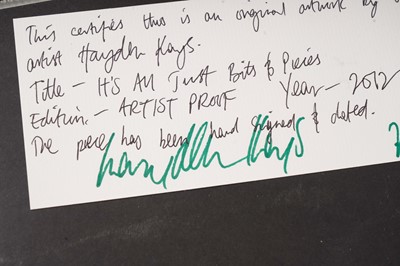 This certifies this is an original artwork by
artist Hayden Kays.
Title - It's All Just Bits & Pieces
Edition - ARTIST PROOF Year - 2012
The piece has been hand signed & dated.
Hayden Kays